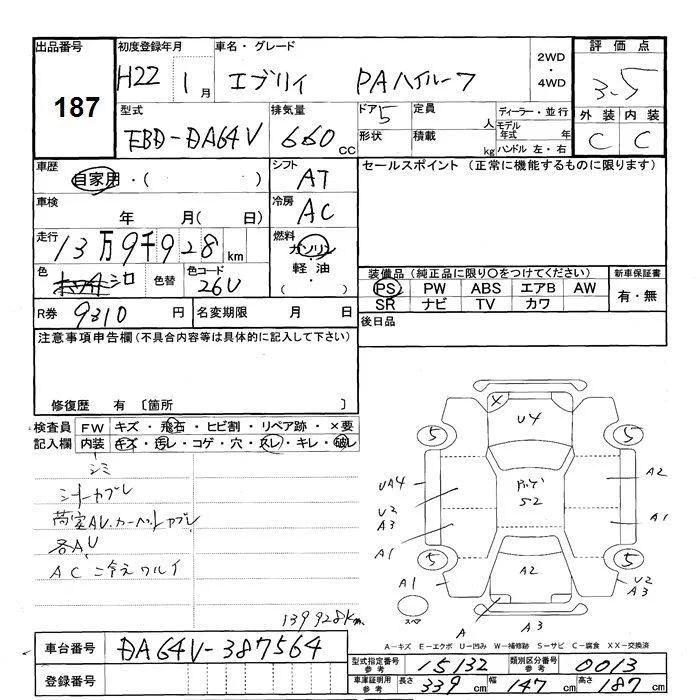 出品番号 初度登録年月 車名・グレード 2WD ・ 4WD 評価点
187 H22 1月 エブリイ PAハイルーフ 3.5
型式 排気量 ドア5 定員 人 ディーラー・並行 外装 内装
EBD-DA64V 660cc 形状 積載 kg モデル年式 年 ハンドル 左・右 C C
車歴 自家用・( ) シフト AT セールスポイント(正常に機能するものに限ります)
車検 年 月( 日) 冷房 AC
走行 13万9千928km 燃料 ガソリン・軽油・( )
色 シロ 色替 色コード 26U
装備品(純正品に限り○をつけてください) 新車保証書
PS PW ABS エアB AW 有・無
SR ナビ TV カワ
R券 9310円 名変期限 月 日 後日品
注意事項申告欄(不具合内容等は具体的に記入して下さい)
修復歴 有 〔箇所 〕
検査員 FW キズ・飛石・ヒビ割・リペア跡・×要
記入欄 内装 キズ・汚レ・コゲ・穴・スレ・キレ・破レ
シミ
シートカブレ
荷室AU.カーペットカブレ
各AU
AC ニ冷えワルイ
139928km
X U4
5 5
UA4 A2
U2 A3 52 A1
A1
5 5
A1 A2 U2 A3
スペア A A3
A-キズ E-エクボ U-凹み W-補修跡 S-サビ C-腐食 XX-交換済
車台番号 DA64V-387564
登録番号
型式指定番号 参考 15132 類別区分番号 参考 0013
車庫証明用 参考 長さ 339cm 幅 147cm 高さ 187cm